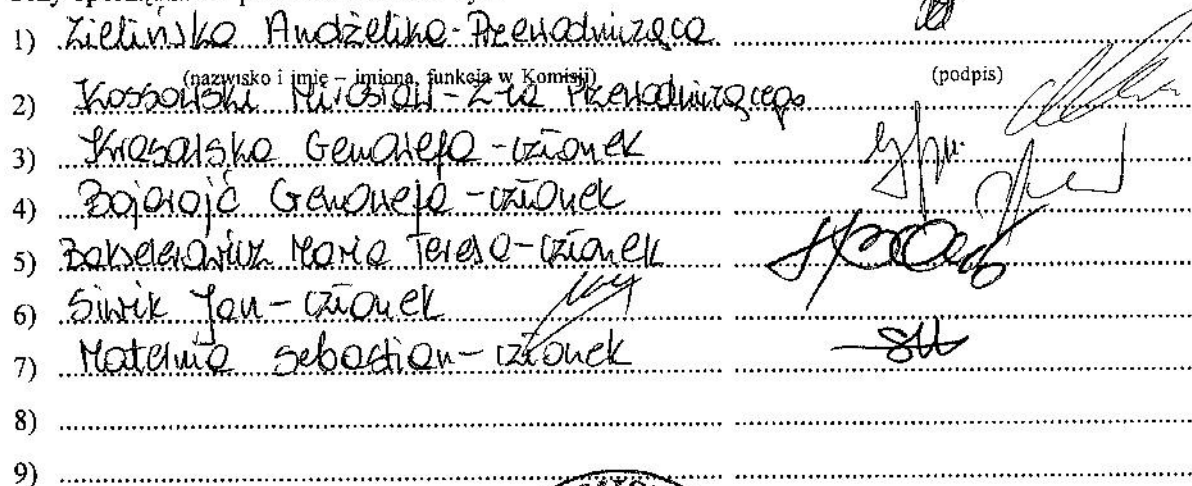 1) Zielińska Andżelika - Przewodnicząca
(nazwisko i imię – imiona, funkcja w Komisji) (podpis)
2) Kossowski Mirosław - Z-ca Przewodniczącego
3) Genowefa - członek
4) Bojarojć Genowefa - członek
5) Maria Teresa - członek
6) Siwik Jan - członek
7) Materna Sebastian - członek
8)
9)